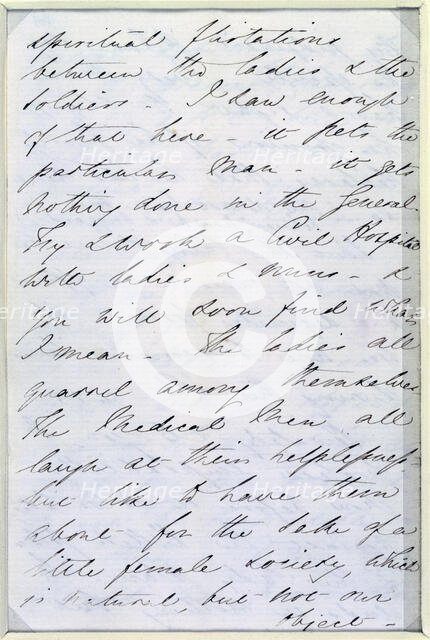 spiritual flirtations
between the ladies & the
soldiers - I saw enough
of that here - it pets the
particular man - it gets
nothing done in the General.
Try & work a Civil Hospital
with ladies & nuns - &
you will soon find what
I mean - The ladies all
quarrel among themselves
The Medical Men all
laugh at their helplessness -
but like to have them
about for the sake of a
little female society, which
is natural, but not our
object -
Heritage
Heritage
Heritage
Heritage
Heritage
Heritage